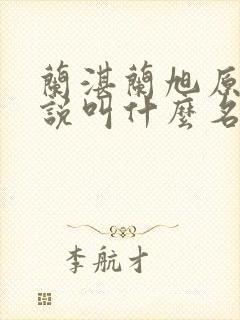 蘭湛蘭旭原
說叫什麼名
李航才